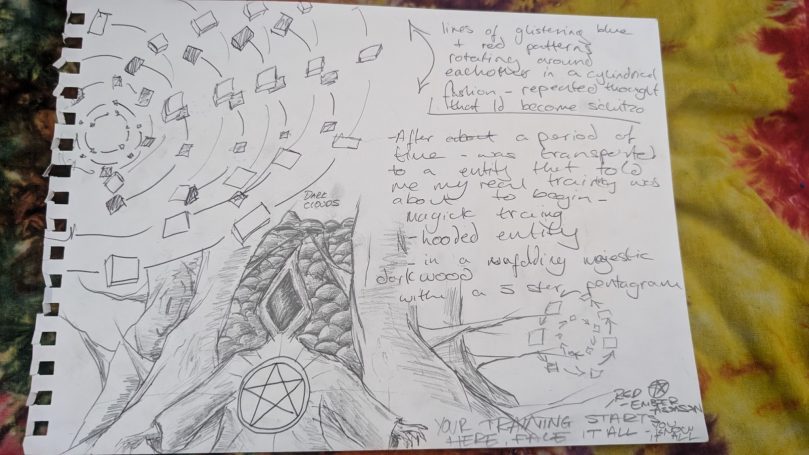 lines of glistening blue
+ red patterns
rotating around
eachother in a cylindrical
fashion - repeated thought
that Id become schitzo
-After about a period of
time - was transported
to a entity that told
me my real training was
about to begin -
magick training
- hooded entity
- in a unfolding majestic
dark wood
with a 5 star pentagram
DARK
CLOUDS
RED
-EMBER
ASSASSIN
YOUR TRAINING STARTS
HERE, FACE IT ALL -
KNOW
IT ALL